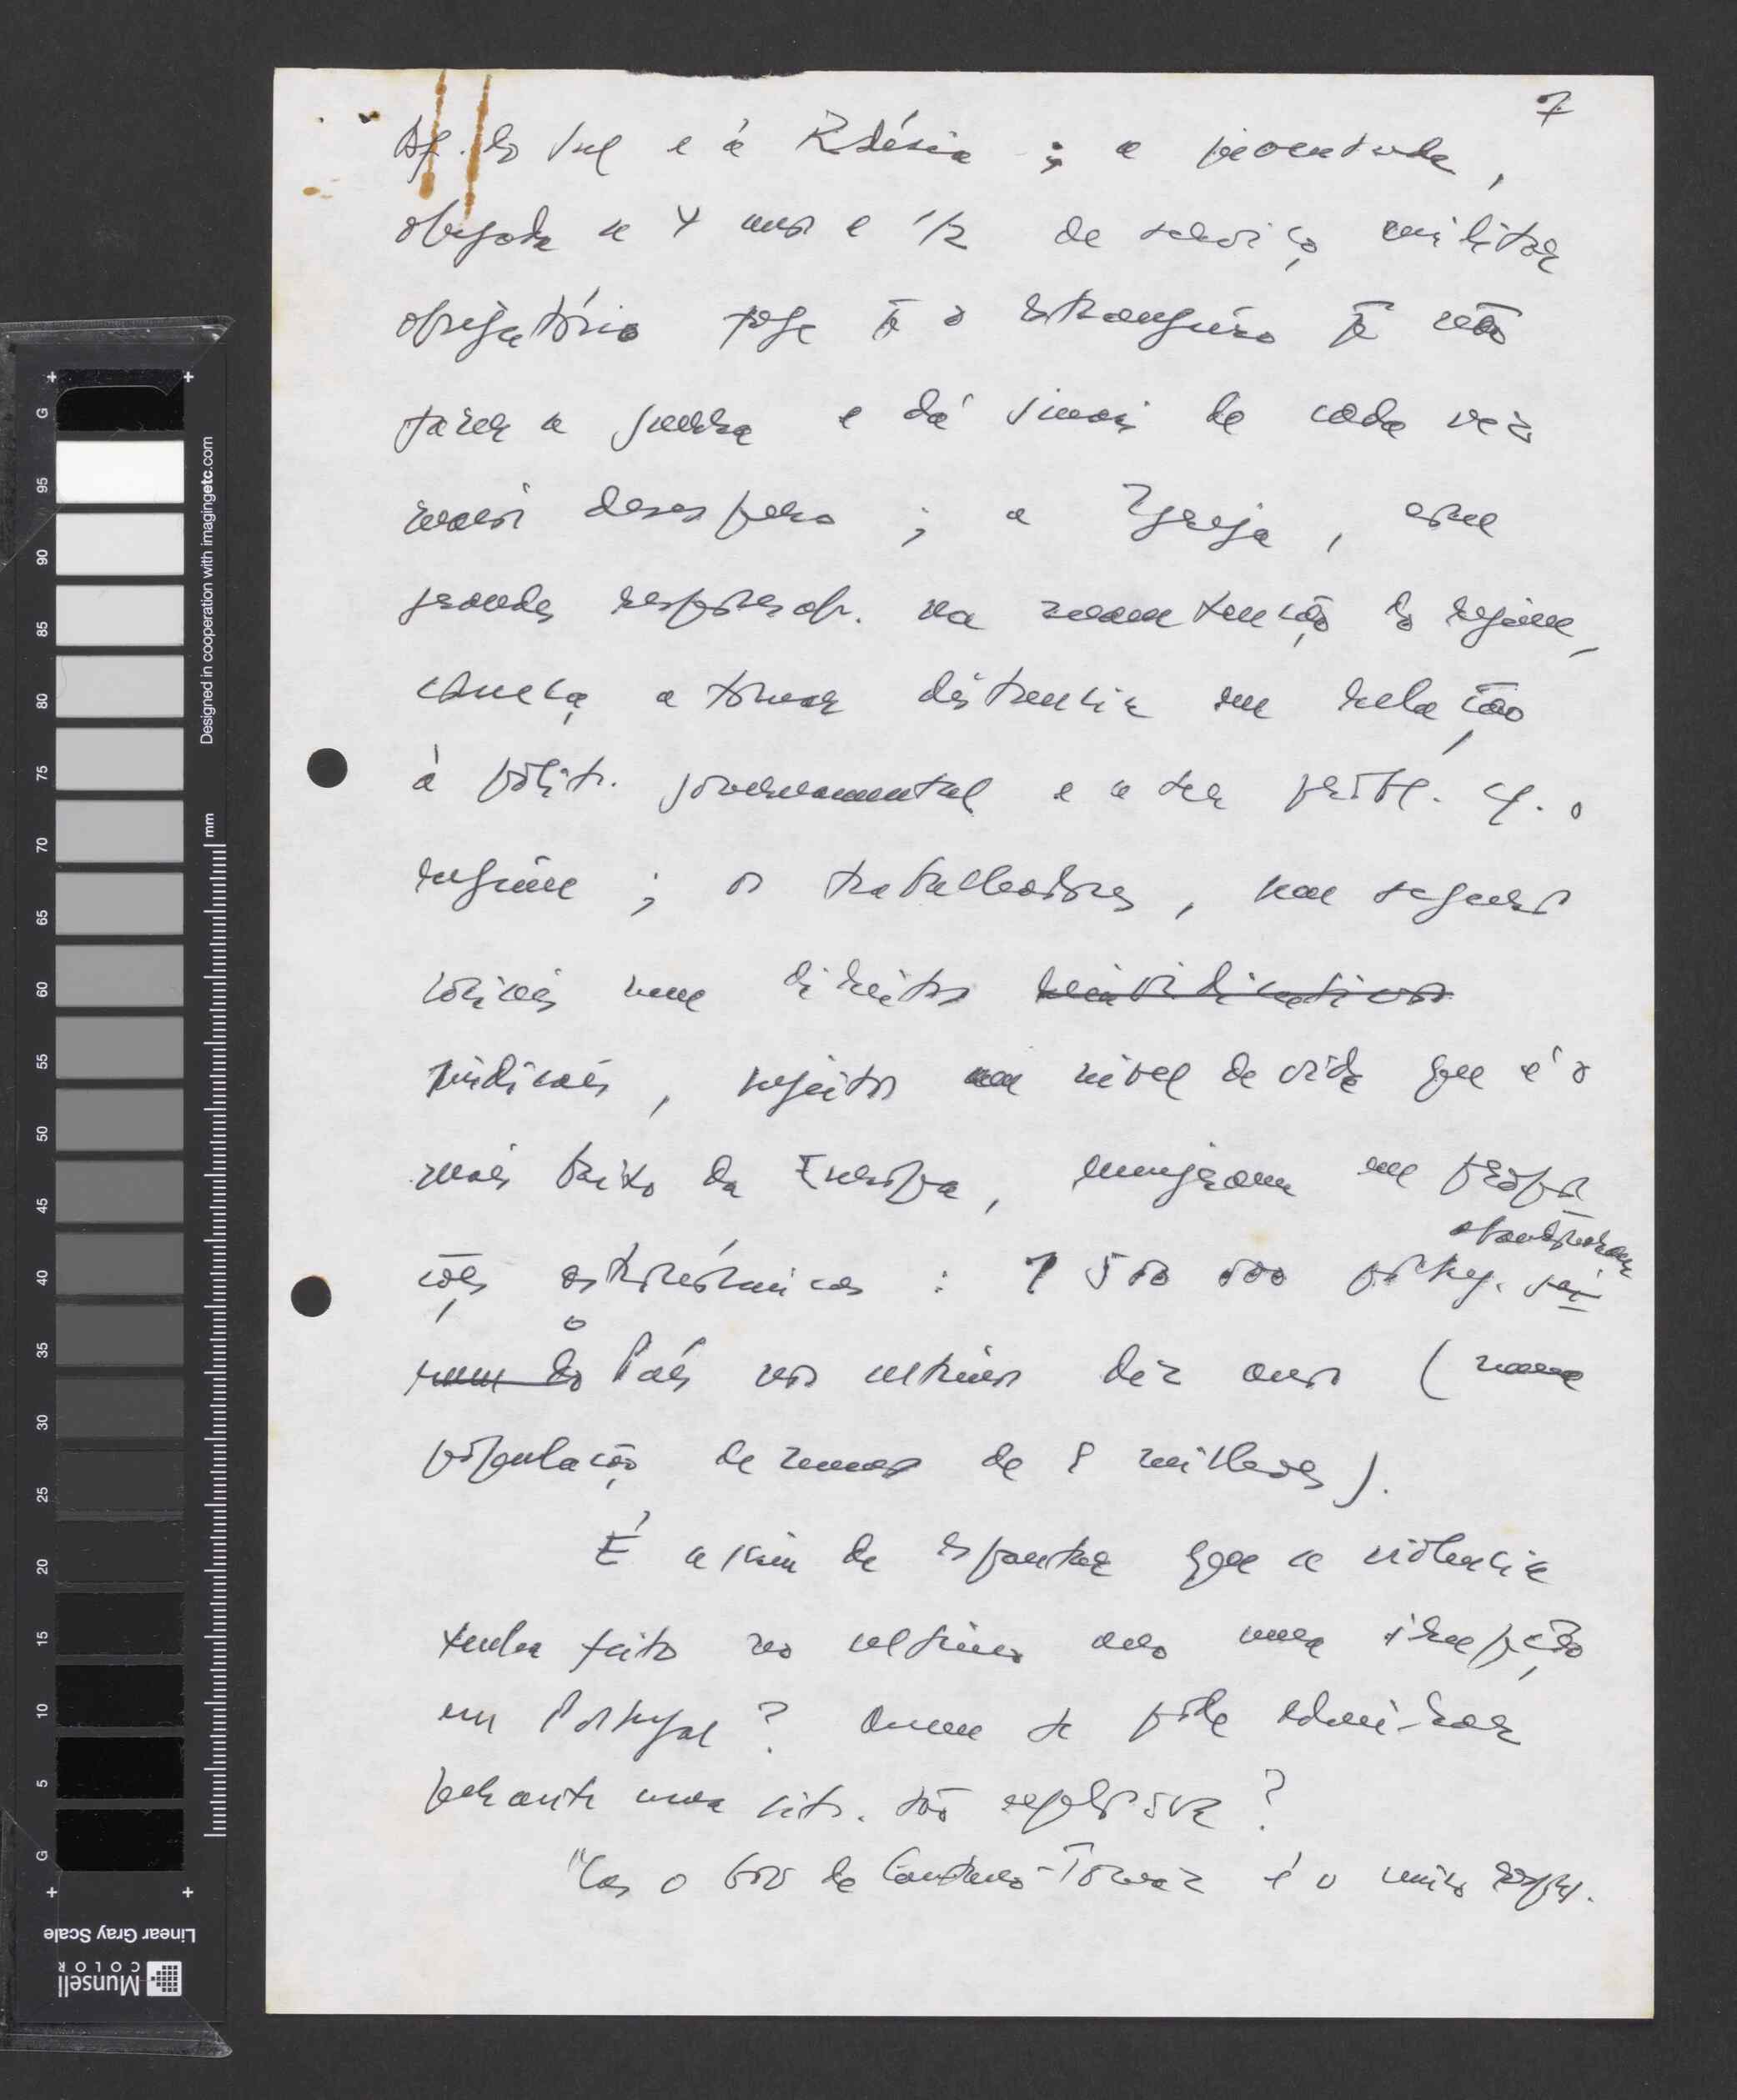 7
Áf. do Sul e à Rodésia ; a juventude,
obrigada a 4 anos e 1/2 de serviço militar
obrigatório foge p̄ o estrangeiro p̄ não
fazer a guerra e dá sinais de cada vez
maior desespero ; a Igreja, com
grandes responsab. na manutenção do regime,
começa a tomar distância em relação
à polít. governamental e a ter probl. c/. o
regime ; os trabalhadores, sem seguros
sociais nem direitos reivindicativos
sindicais, sujeitos a um nível de vida que é o
mais baixo da Europa, emigram em propor
ções astronómicas : 1 500 000 portug. sai
abandonaram
ram do o País nos ultimos dez anos (numa
população de menos de 8 milhões).
É assim de espantar que a violência
tenha feito no ultimo ano uma irrupção
em Portugal ? Quem se pode admirar
perante uma sit. tão explosiva ?
Mas o Gov de Caetano-Tomaz é o unico respons.